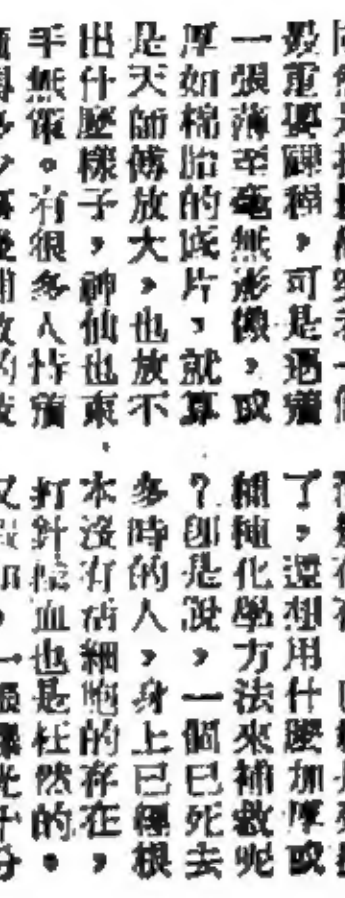 重要關，可是遇着
一張薄至毫無影像，或
厚如棉胎的底片，就算
是天師傅放大，也放不
出什麼樣子，神仙也束
手無策。有很多人恃着
了，還想用什麼加厚或
種種化學方法來補救呢
？即是說，一個已死去
多時的人，身上已經根
本沒有活細胞的存在，
打針輸血也是枉然的。